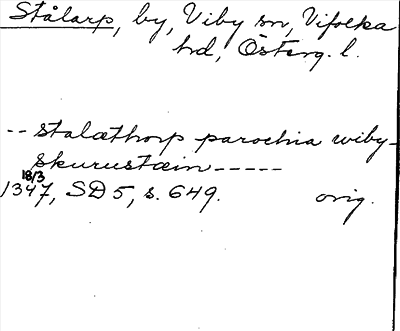 Stålarp, by, Viby sn, Vifolka
hd, Österg. l.
-- stalæthorp parochia wiby-
skurustæin-----
18/3
1347, SD 5, s. 649. orig.